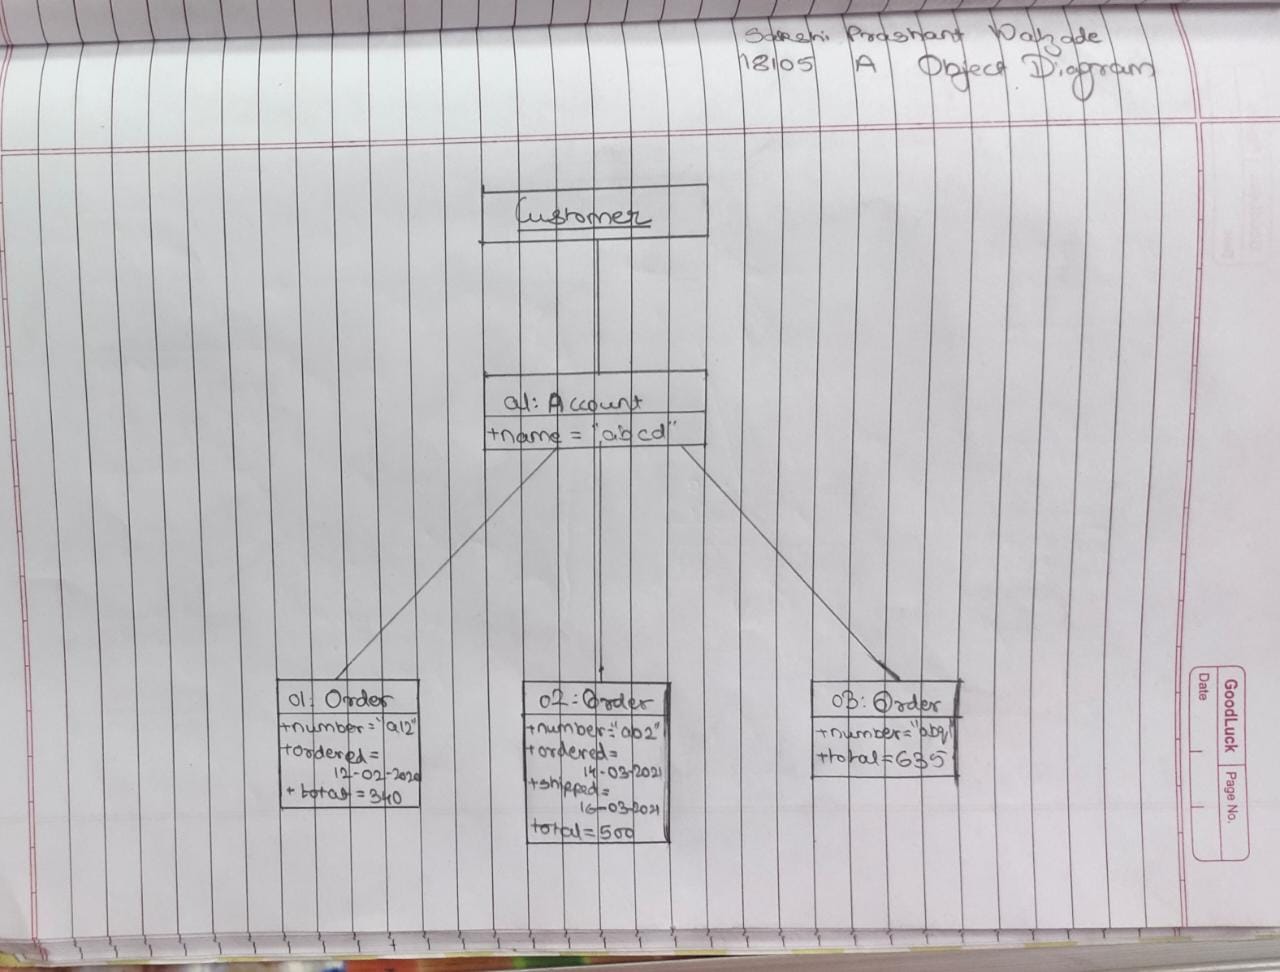 Sakshi Prashant Walzade
18105 A Object Diagram
Customer
a1: Account
+name = "abcd"
o1: Order
+number="a12"
+ordered=
12-02-2020
+total=340
o2:Order
+number="ab2"
+ordered=
14-03-2021
+shipped=
16-03-2021
total=500
o3: Order
+number="abq"
+total=635
GoodLuck
Page No.
Date